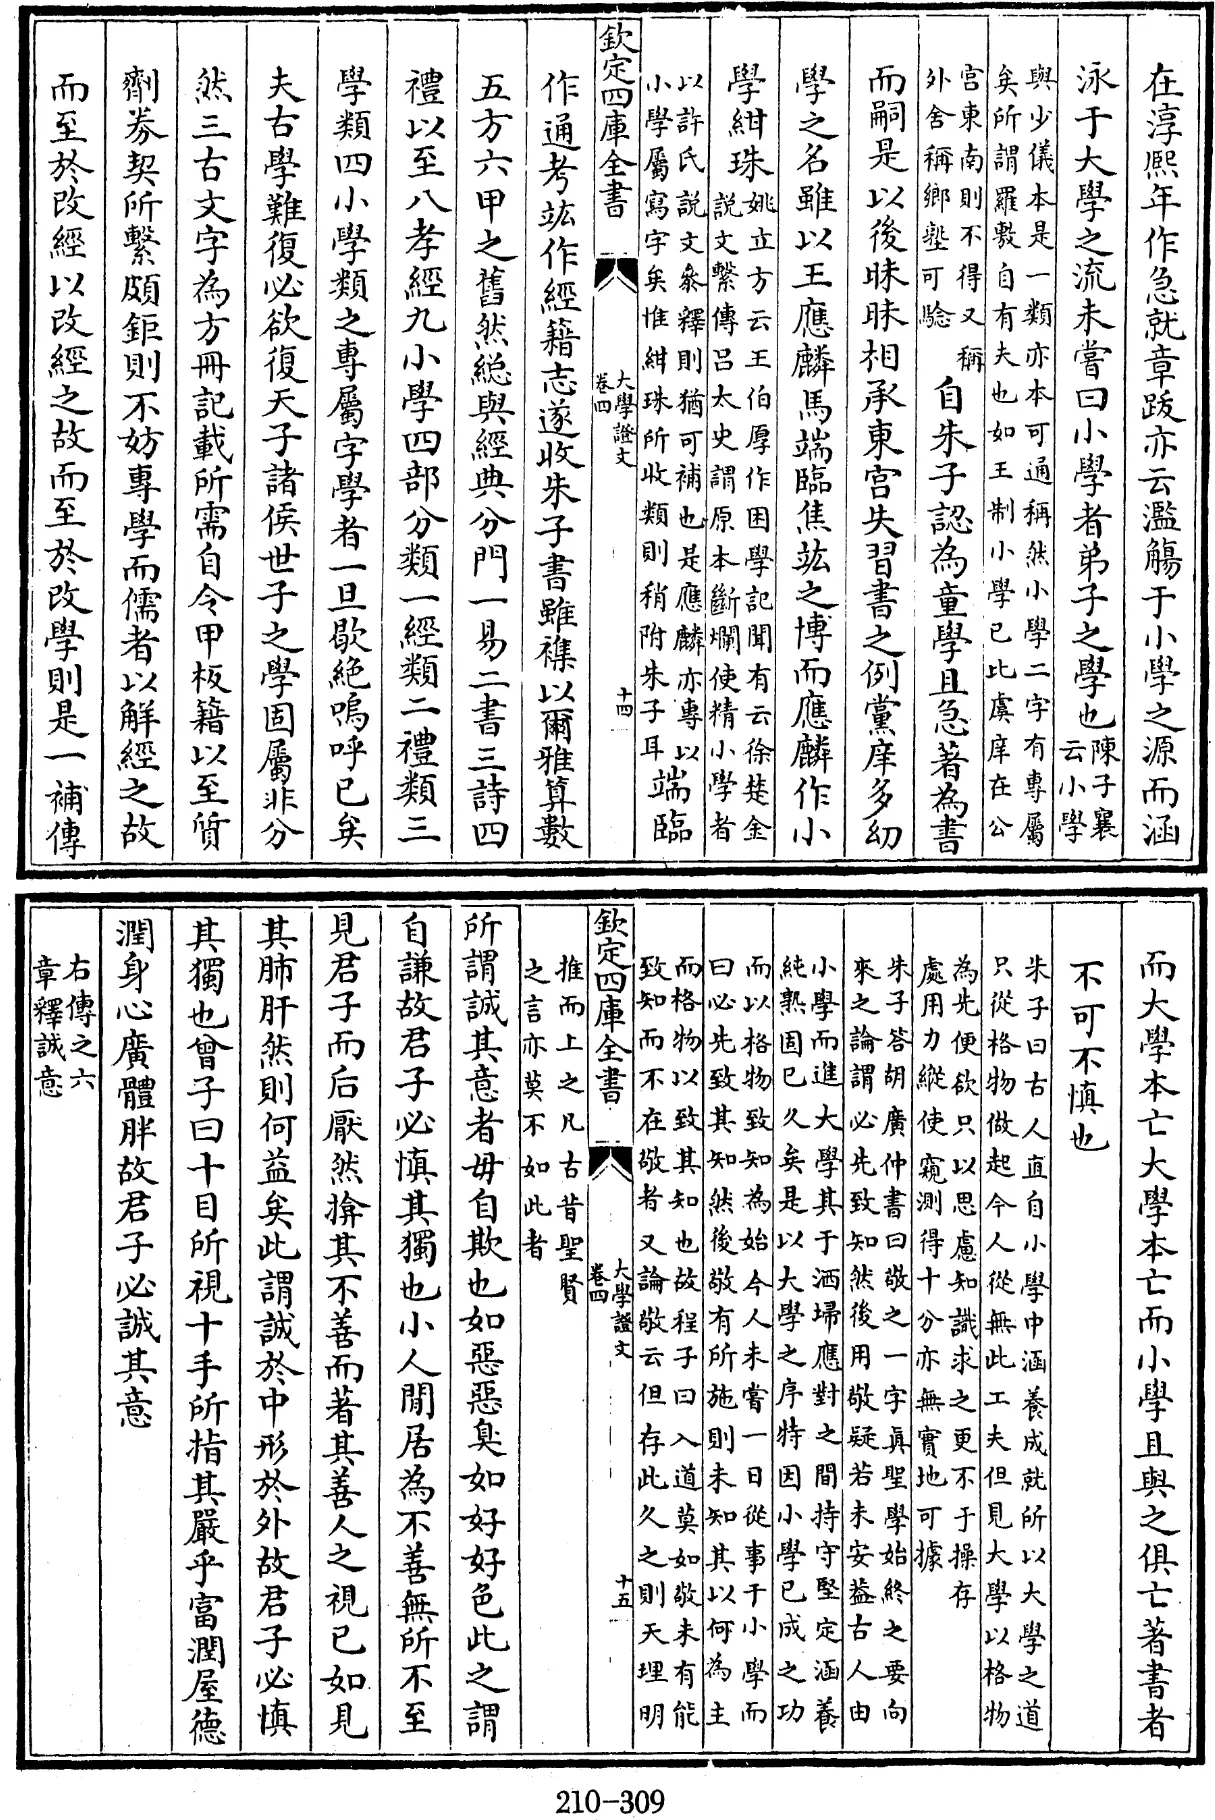 在淳熙年作急就章跋亦云濫觴于小學之源而涵
泳于大學之流未嘗曰小學者弟子之學也陳子襄
云小學
與少儀本是一類亦本可通稱然小學二字有專屬
矣所謂羅敷自有夫也如王制小學已比虞庠在公
宮東南則不得又稱
外舍稱鄉塾可驗
自朱子認為童學且急著為書
而嗣是以後昧昧相承東宮失習書之例黨庠多幼
學之名雖以王應麟馬端臨焦竑之博而應麟作小
學紺珠
姚立方云王伯厚作困學記聞有云徐楚金
說文繫傳呂太史謂原本斷爛使精小學者
以許氏說文參釋則猶可補也是應麟亦專以
小學屬寫字矣惟紺珠所收類則稍附朱子耳
端臨
欽定四庫全書
大學證文
卷四
十四
作通考竑作經籍志遂收朱子書雖襍以爾雅算數
五方六甲之舊然總與經典分門一易二書三詩四
禮以至八孝經九小學四部分類一經類二禮類三
學類四小學類之專屬字學者一旦歇絕嗚呼已矣
夫古學難復必欲復天子諸侯世子之學固屬非分
然三古文字為方冊記載所需自令甲板籍以至質
劑券契所繫頗鉅則不妨專學而儒者以解經之故
而至於改經以改經之故而至於改學則是一補傳
而大學本亡大學本亡而小學且與之俱亡著書者
不可不慎也
朱子曰古人直自小學中涵養成就所以大學之道
只從格物做起今人從無此工夫但見大學以格物
為先便欲只以思慮知識求之更不于操存
處用力縱使窺測得十分亦無實地可據
朱子答胡廣仲書曰敬之一字真聖學始終之要向
來之論謂必先致知然後用敬疑若未安蓋古人由
小學而進大學其于洒埽應對之間持守堅定涵養
純熟固已久矣是以大學之序特因小學已成之功
而以格物致知為始今人未嘗一日從事于小學而
曰必先致其知然後敬有所施則未知其以何為主
而格物以致其知也故程子曰入道莫如敬未有能
致知而不在敬者又論敬云但存此久之則天理明
欽定四庫全書
大學證文
卷四
十五
推而上之凡古昔聖賢
之言亦莫不如此者
所謂誠其意者毋自欺也如惡惡臭如好好色此之謂
自謙故君子必慎其獨也小人閒居為不善無所不至
見君子而后厭然揜其不善而著其善人之視己如見
其肺肝然則何益矣此謂誠於中形於外故君子必慎
其獨也曾子曰十目所視十手所指其嚴乎富潤屋德
潤身心廣體胖故君子必誠其意
右傳之六
章釋誠意
210-309